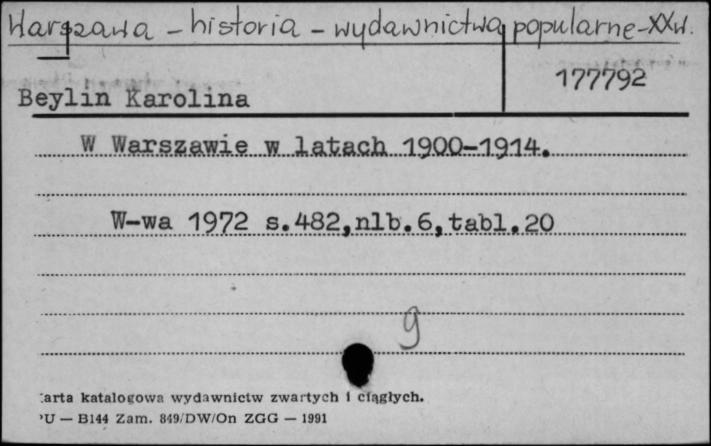 Warszawa – historia – wydawnictwa popularne – XXw.
177792
Beylin Karolina
W Warszawie w latach 1900–1914.
W–wa 1972 s.482,nlb.6,tabl.20
9
arta katalogowa wydawnictw zwartych i ciągłych.
U — B144 Zam. 849/DW/On ZGG — 1991